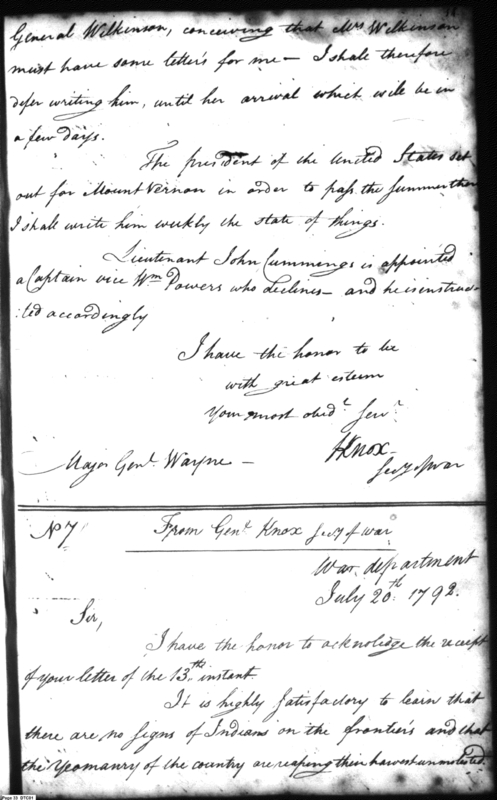 General Wilkinson, conceiving that Mrs Wilkinson
must have some letters for me — I shall therefore
defer writing him, until her arrival which will be in
a few days.
The president of the United States set
out for Mount Vernon in order to pass the summer there
I shall write him weekly the state of things.
Lieutenant John Cummings is appointed
a Captain vice Wm Powers who declines — and he is instruc-
:ted accordingly
I have the honor to be
with great esteem
Your most obedt Servt
HKnox
Secy of war
Major Genl Wayne —
No 7
From Genl Knox Secy of war
War department
July 20th 1792.
Sir,
I have the honor to acknolidge the receipt
of your letter of the 13th instant.
It is highly satisfactory to learn that
there are no signs of Indians on the frontiers and that
the Yeomanry of the country are reaping their harvest unmolested.
Page 33 DTC01